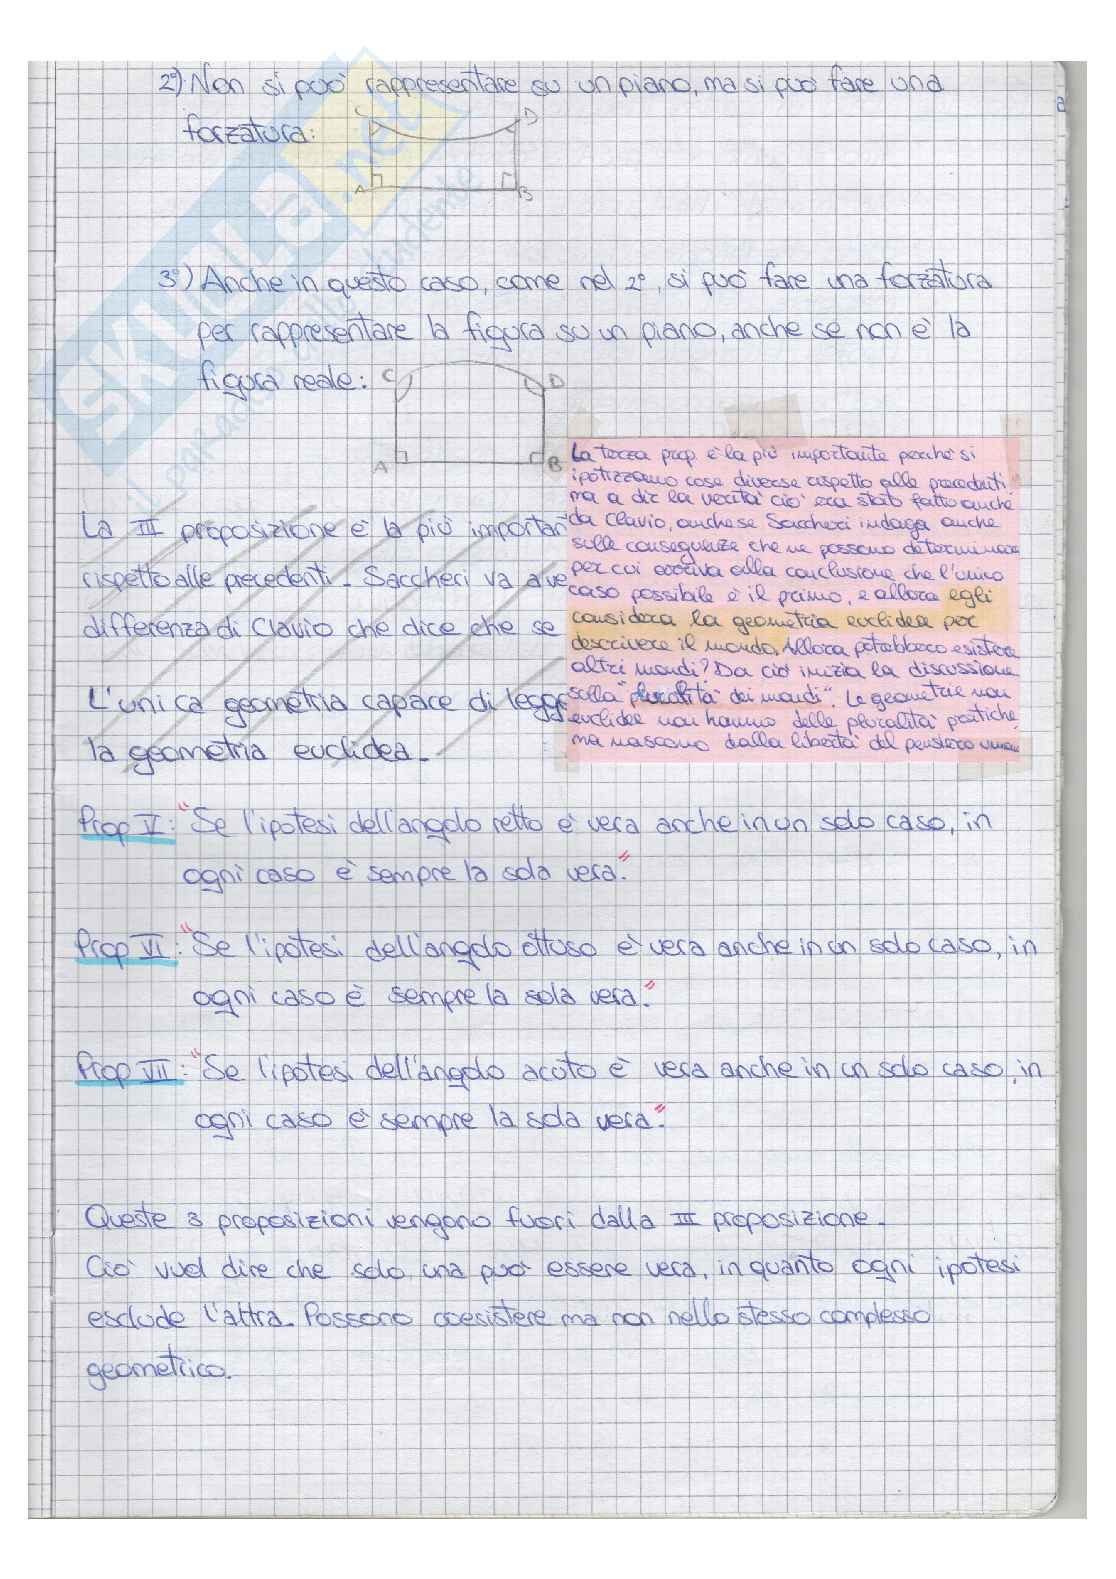 2°) Non si può rappresentare su un piano, ma si può fare una
forzatura:
C D
A B
3°) Anche in questo caso, come nel 2°, si può fare una forzatura
per rappresentare la figura su un piano, anche se non è la
figura reale:
C D
A B
La terza prop. è la più importante perché si
ipotizzano cose diverse rispetto alle precedenti
ma a dir la verità ciò era stato fatto anche
da Clavio, anche se Saccheri indaga anche
sulle conseguenze che ne possono determinare
per cui arriva alla conclusione che l'unico
caso possibile è il primo, e allora egli
considera la geometria euclidea per
descrivere il mondo. Allora potrebbero esistere
altri mondi? Da ciò inizia la discussione
sulla "pluralità dei mondi". Le geometrie non
euclidee non hanno delle pluralità pratiche,
ma nascono dalla libertà del pensiero uman
La III proposizione è la più importan
rispetto alle precedenti. Saccheri va ave
differenza di Clavio che dice che se
L'unica geometria capace di legge
la geometria euclidea.
Prop V: "Se l'ipotesi dell'angolo retto è vera anche in un solo caso, in
ogni caso è sempre la sola vera."
Prop VI: "Se l'ipotesi dell'angolo ottuso è vera anche in un solo caso, in
ogni caso è sempre la sola vera."
Prop VII: "Se l'ipotesi dell'angolo acuto è vera anche in un solo caso, in
ogni caso è sempre la sola vera."
Queste 3 proposizioni vengono fuori dalla III proposizione.
Ciò vuol dire che solo una può essere vera, in quanto ogni ipotesi
esclude l'altra. Possono coesistere ma non nello stesso complesso
geometrico.
SKUOLA.net